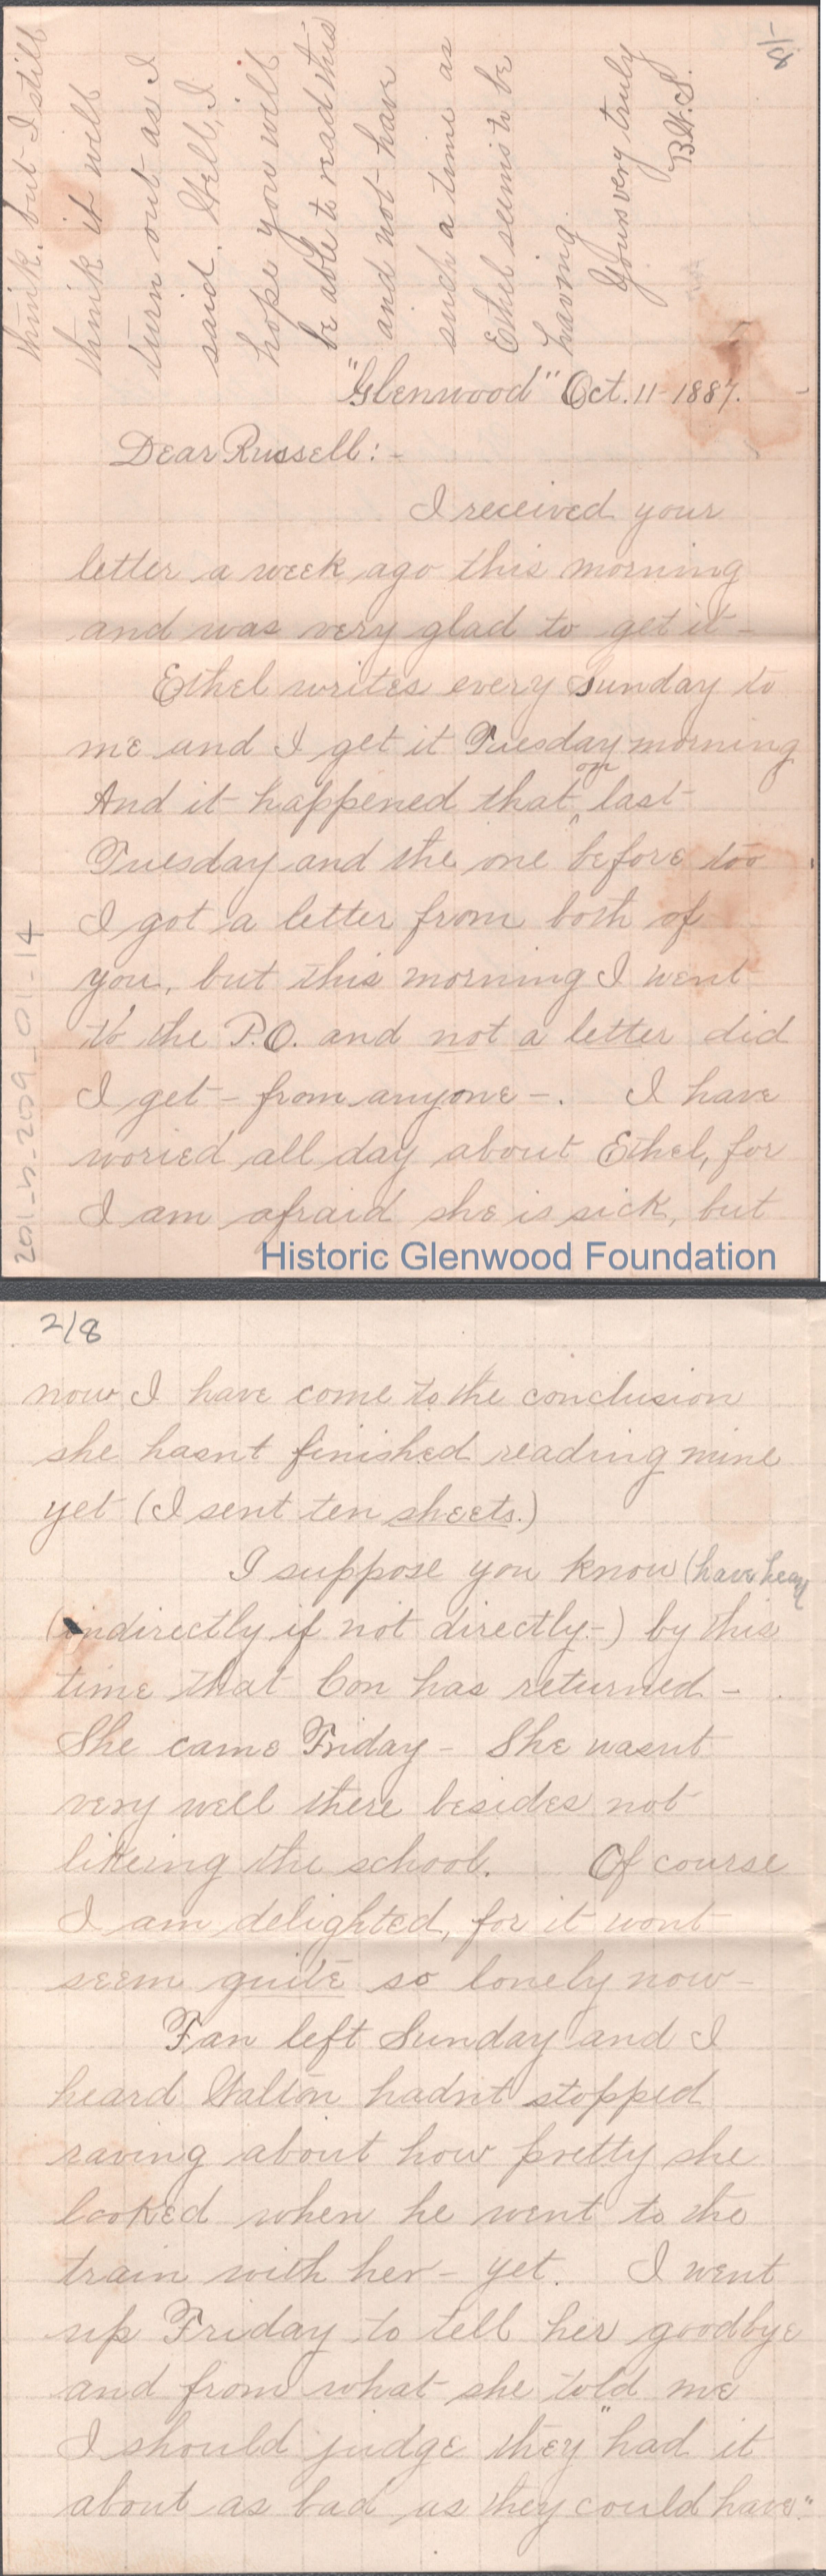 1/8
think. but I still
think it will
turn out as I
said. Well, I
hope you will
be able to read this
and not have
such a time as
Ethel seems to be
having.
Yours very truly
B.H.S.
"Glenwood" Oct. 11-1887.
Dear Russell:-
I received your
letter a week ago this morning
and was very glad to get it-
Ethel writes every Sunday to
me and I get it Tuesday morning
And it happened that on last
Tuesday and the one before too
I got a letter from both of
you, but this morning I went
to the P.O. and not a letter did
I get - from anyone -. I have
woried all day about Ethel, for
I am afraid she is sick, but
201-5-209-01-14
Historic Glenwood Foundation
2/8
now I have come to the conclusion
she hasnt finished reading mine
yet (I sent ten sheets.)
I suppose you know (have heard
(indirectly if not directly-) by this
time that Con has returned -
She came Friday - She wasnt
very well there besides not
likeing the school. Of course
I am delighted, for it wont
seem quite so lonely now -
Fan left Sunday and I
heard Walton hadn't stopped
raving about how pretty she
looked when he went to the
train with her - yet. I went
up Friday to tell her goodbye
and from what she told me
I should judge they "had it
about as bad as they could have"